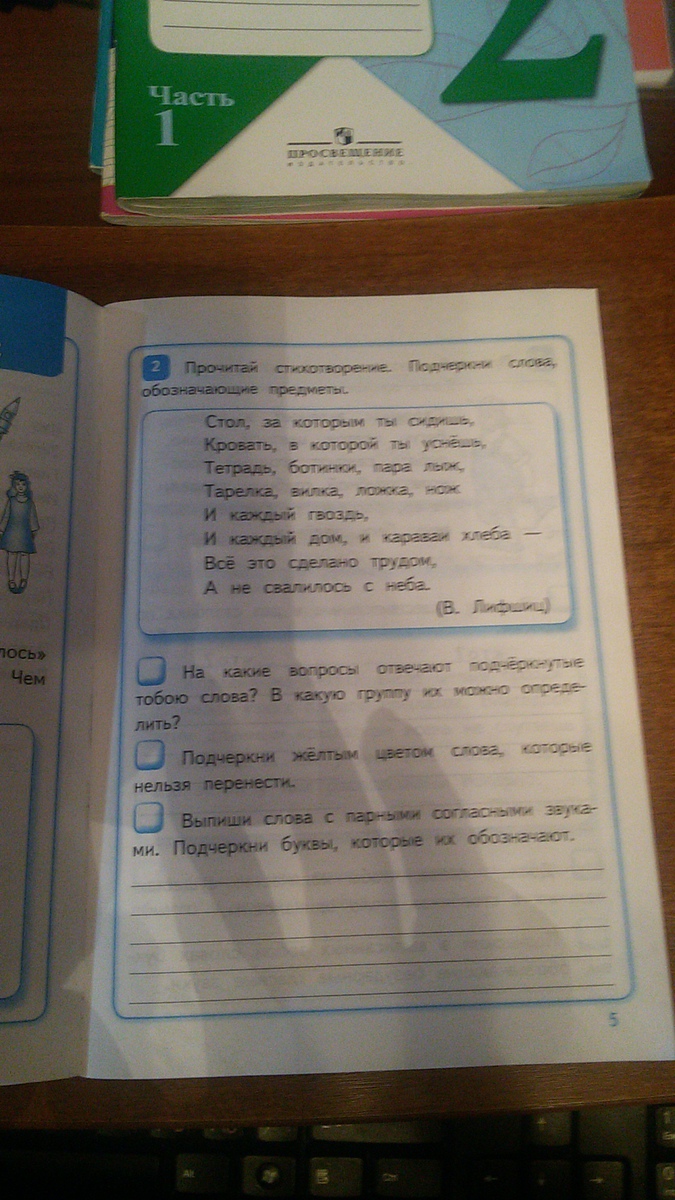 2
Часть
1
ПРОСВЕЩЕНИЕ
ИЗДАТЕЛЬСТВО
лось»
Чем
2 Прочитай стихотворение. Подчеркни слова,
обозначающие предметы.
Стол, за которым ты сидишь,
Кровать, в которой ты уснёшь,
Тетрадь, ботинки, пара лыж,
Тарелка, вилка, ложка, нож
И каждый гвоздь,
И каждый дом, и каравай хлеба —
Всё это сделано трудом,
А не свалилось с неба.
(В. Лифшиц)
На какие вопросы отвечают подчёркнутые
тобою слова? В какую группу их можно опреде-
лить?
Подчеркни жёлтым цветом слова, которые
нельзя перенести.
Выпиши слова с парными согласными звука-
ми. Подчеркни буквы, которые их обозначают.
5
Alt